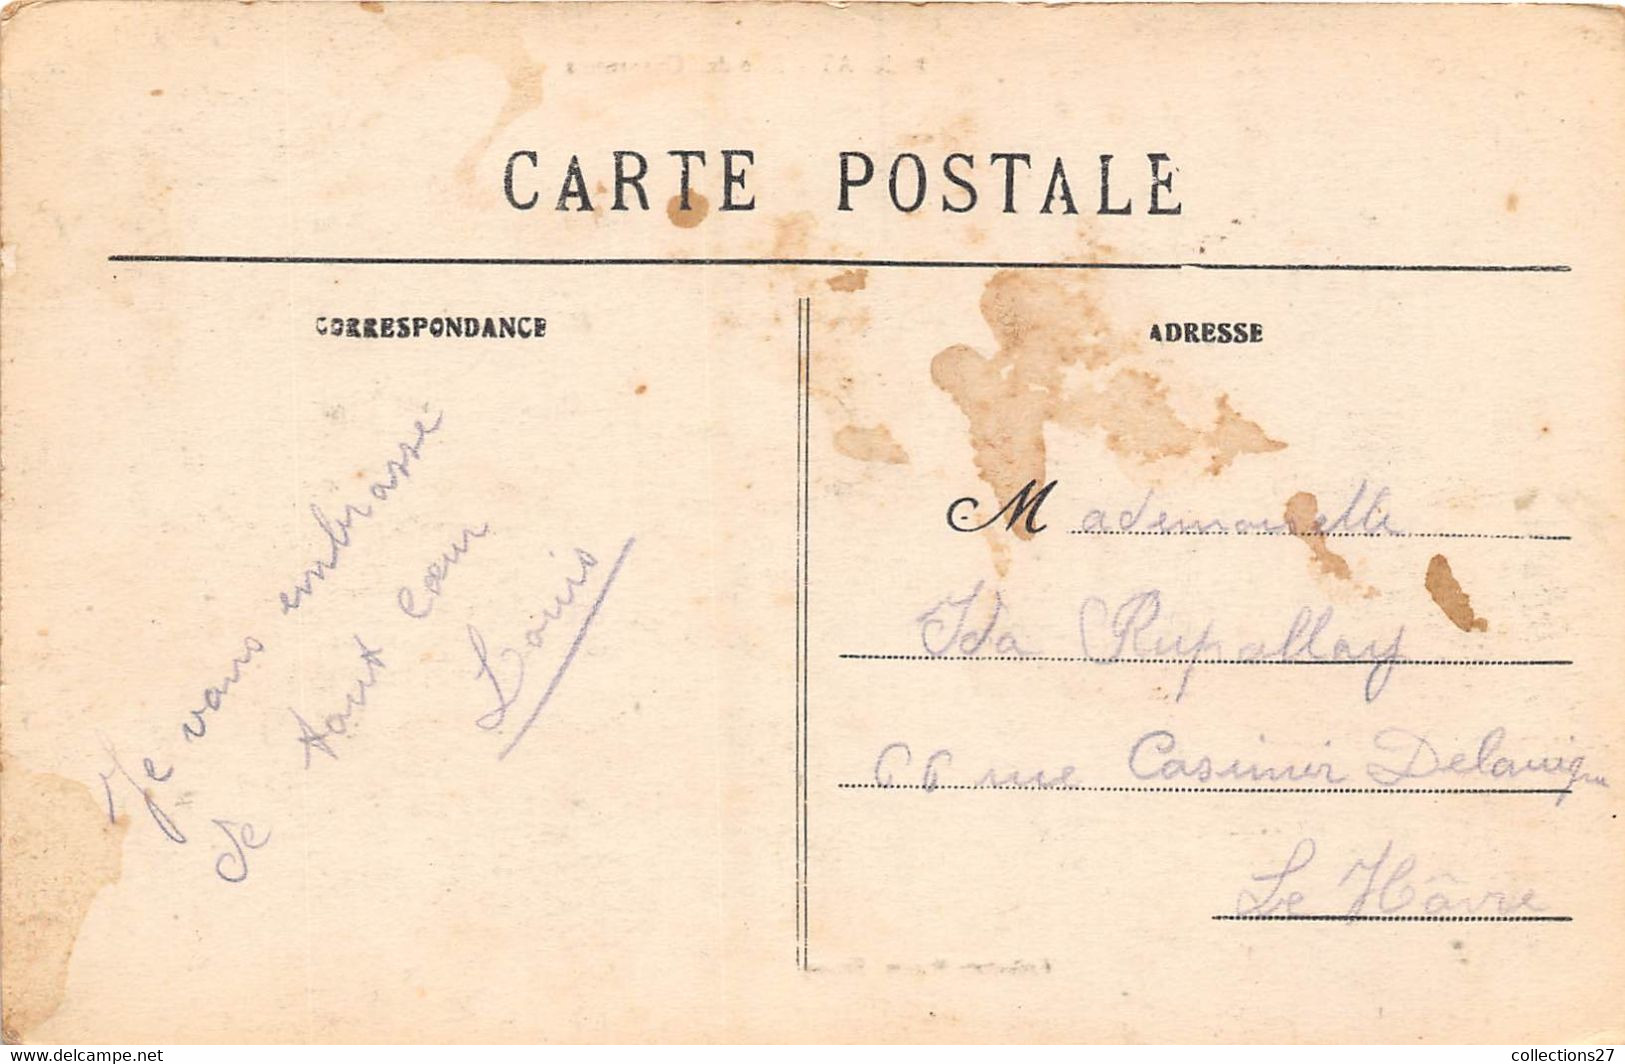 CARTE POSTALE
CORRESPONDANCE
Je vous embrasse
de tout cœur
Louis
ADRESSE
Mademoiselle
Ida Rupallay
66 rue Casimir Delavigne
Le Hâvre
www.delcampe.net
collections27